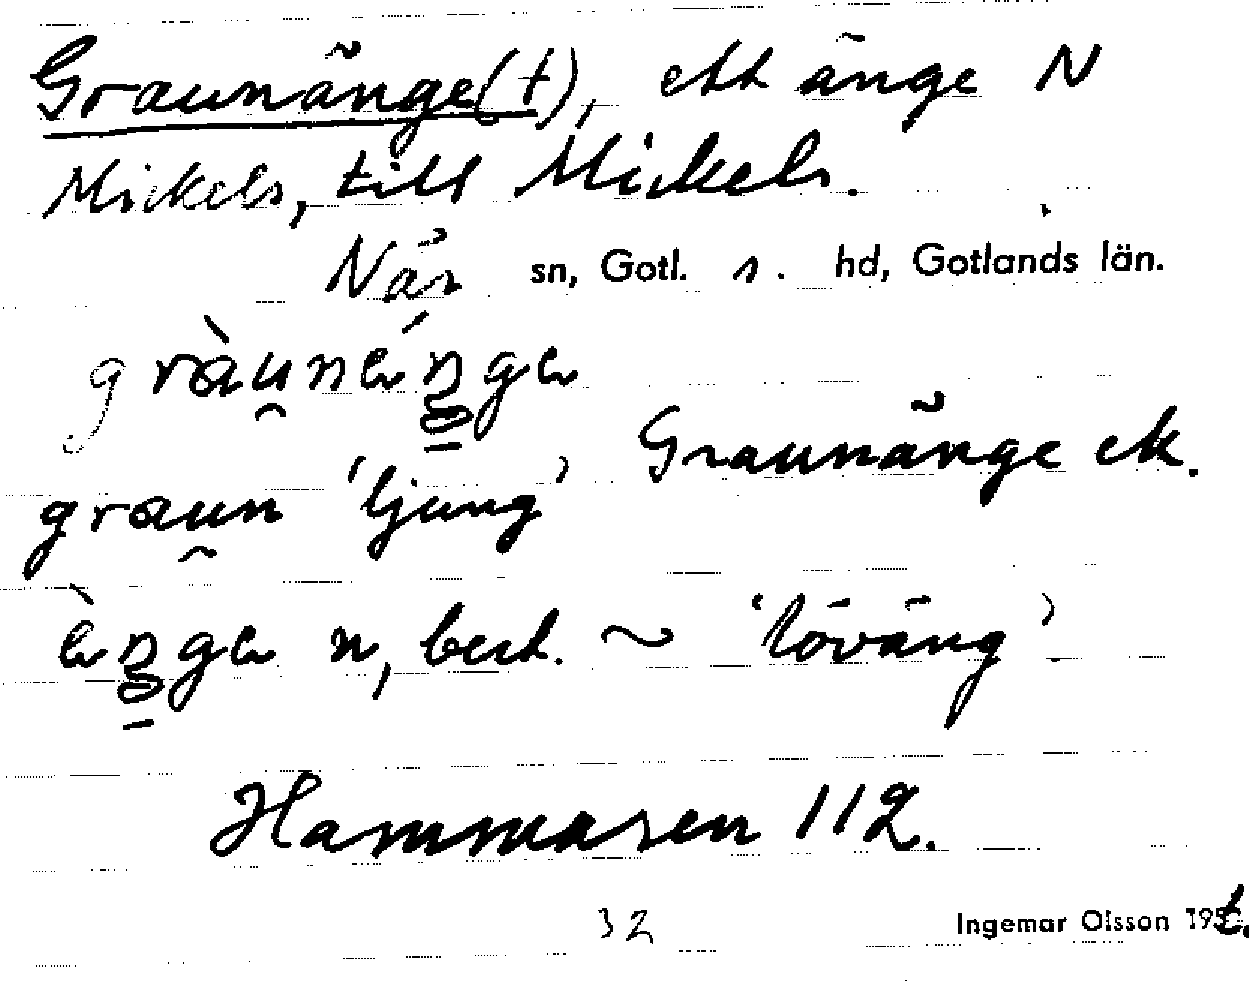 Graunänge(t), ett änge N
Mickels, till Mickels.
När sn, Gotl. s. hd, Gotlands län.
gràu̯nǽŋgæ
Graunänge ek.
grau̯n 'ljung'
æ̀ŋgæ n, best. ~ 'löväng'
Hammaren 112.
32
Ingemar Olsson